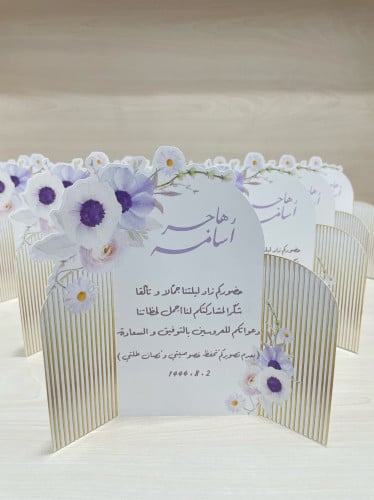 هاجر و
أسامة
حضوركم زاد ليلتنا جمالا و تألقا
شكرا لمشاركتكم لنا اجمل لحظاتنا
دعواتكم للعروسين بالتوفيق و السعادة
(بعدم تصويركم تحفظ خصوصيتي و تصان طلتي)
1444.8.2